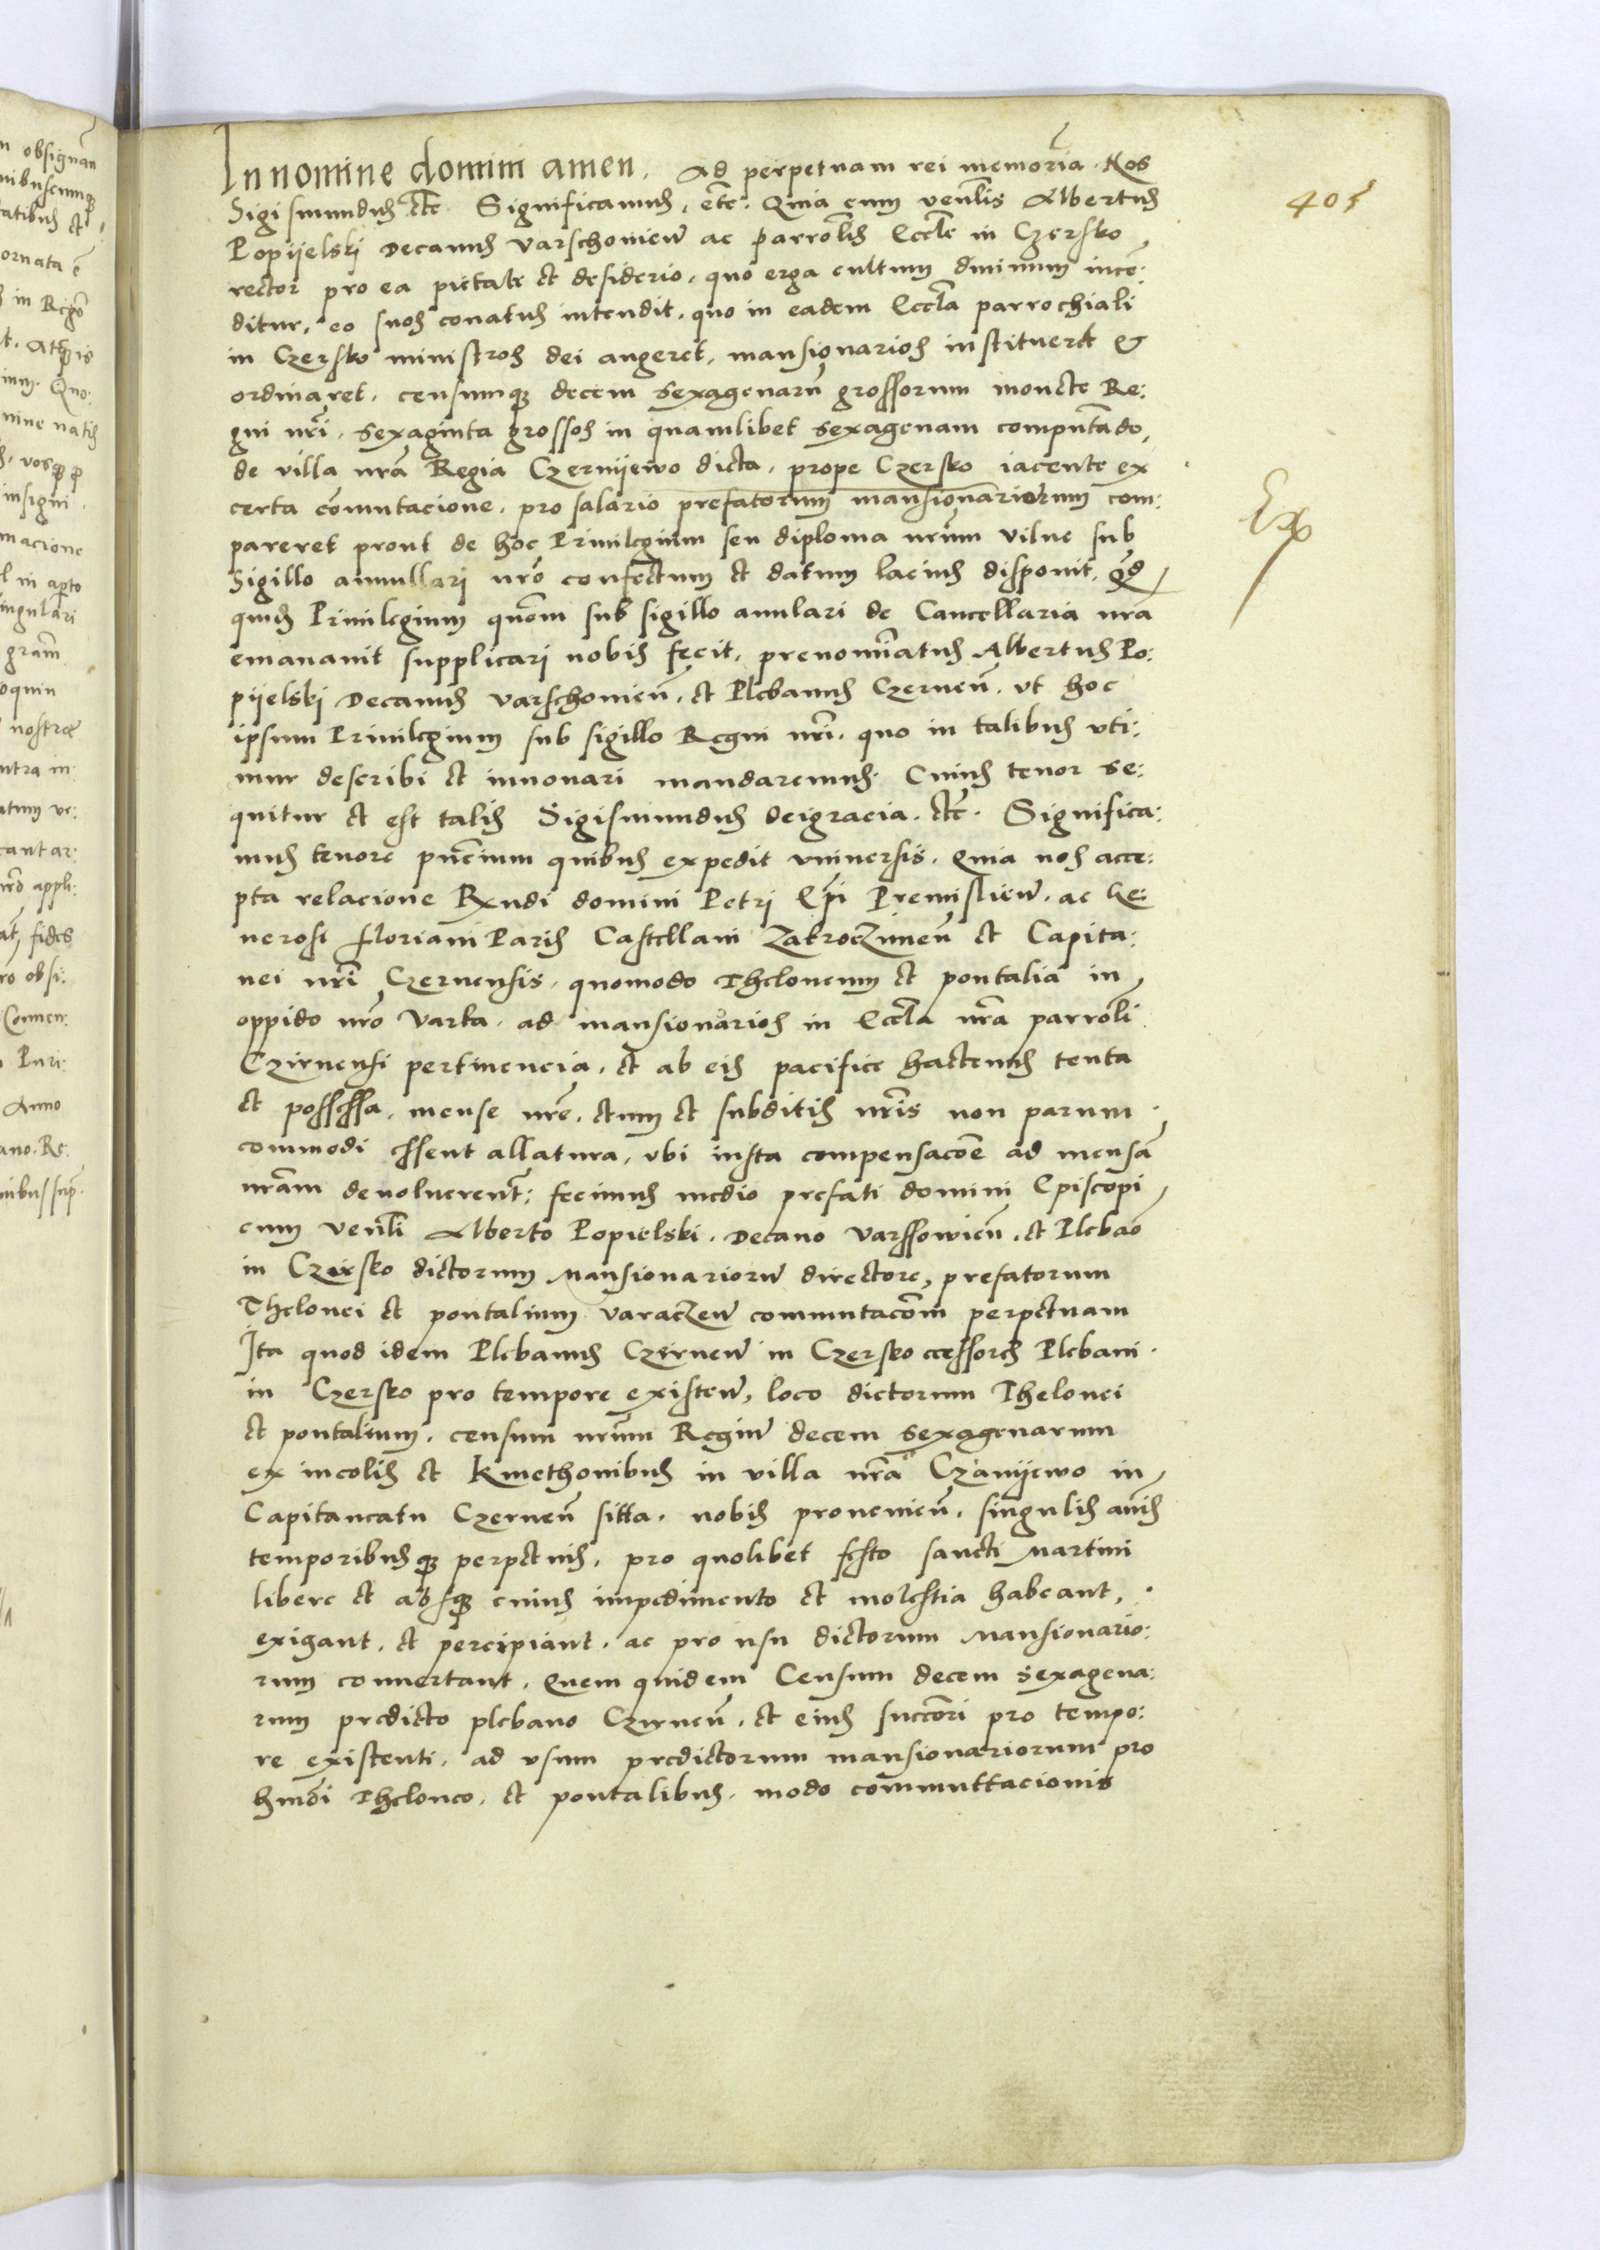 In nomine domini amen. Ad perpetuam rei memoria(m). Nos
405
Sigismundus etc Significamus, etc. Quia cum ven(er)lis Albertus
Popijelski Decanus Varschouien̄ ac parrolis Eccl(es)ie in Czersko
rector pro ea pietate et desiderio, quo erga cultum diuinum incē:
ditur, eo suos conatus intendit, quo in eadem Eccl̄a parrochiali
in Czersko ministros dei augeret, mansionarios institueret &
ordinaret, censumq; decem sexagenarū grossorum moncte Re:
gni nr̄i, sexaginta grossos in quamlibet sexagenam computādo,
de villa nrā Regia Czernijewo dicta, prope Czersko iacente ex
certa cōmutacione, pro salario prefatorum mansionariorum com:
Ex
pareret prout de hoc Priuilegium seu diploma nrūm vilne sub
Sigillo annullari nrō confectum et datum lacius disponit, qd̄
quia Priuilegium quoniam sub sigillo anulari de Cancellaria nrā
emanauit supplicari nobis fecit, prenomīatus Albertus Po:
pijelski Decanus Varschouien̄, et Plebanus Czernen̄, vt hoc
ipsum Priuilegium sub sigillo Regni nrī, quo in talibus vti:
mur describi et innouari mandaremus. Cuius tenor se:
quitur et est talis Sigismundus deigracia, etc. Significa:
mus tenore pn̄cium quibus expedit vniuersis, Quia nos acce:
pta relacione Rxndi domini Petri Ep̄i Premislien̄, ac Ge:
nerosi Floriani Paris Castellani Zakroczimen̄ et Capita:
nei nrī Czernensis, quomodo Thelonenm et pontalia in
oppido nrō Varka, ad mansionarios in Eccl̄a nrā parrolī
Czirnensi pertinencia, et ab eis pacifice hactenus tenta
et possessa, mense nrē, ctum et subditis nrīs non parum
commodi essent allatura, vbi iusta compensacōe ad mensā
nrām deuoluerent̄: fecimus medio prefati domini Episcopi
cum Venlī Alberto Popielski, Decano Varssowien̄, et Plebāo
in Czersko dictorum Mansionariorū directore, prefatorum
Thelonei et pontalium Varaczen̄ commutacōm perpetuam
Ita quod idem Plebanus Czirnen̄ in Czersko ccessores Plebani
in Czersko pro tempore existen̄, loco dictorum Thelonei
et pontalium, censum nrūm Regiū decem sexagenarum
ex incolis et Kmethonibus in villa nrā Czanijewo in
Capitaneatu Czernen̄ sitta, nobis prouenien̄, singulis annis
temporibusq; perpetuis, pro quolibet festo sancti Martini
libere et absq; cuius impedimento et molestia habeant,
exigant, et percipiant, ac pro usu dictorum Mansionario:
rum conuertant, Quem quidem Censum decem sexagena:
rum predicto plebano Czirnen̄, et eius succōri pro tempo:
re existenti, ad vsum predictorum mansionariorum pro
hmōi Theloneo, et pontalibus, modo commuttacionis